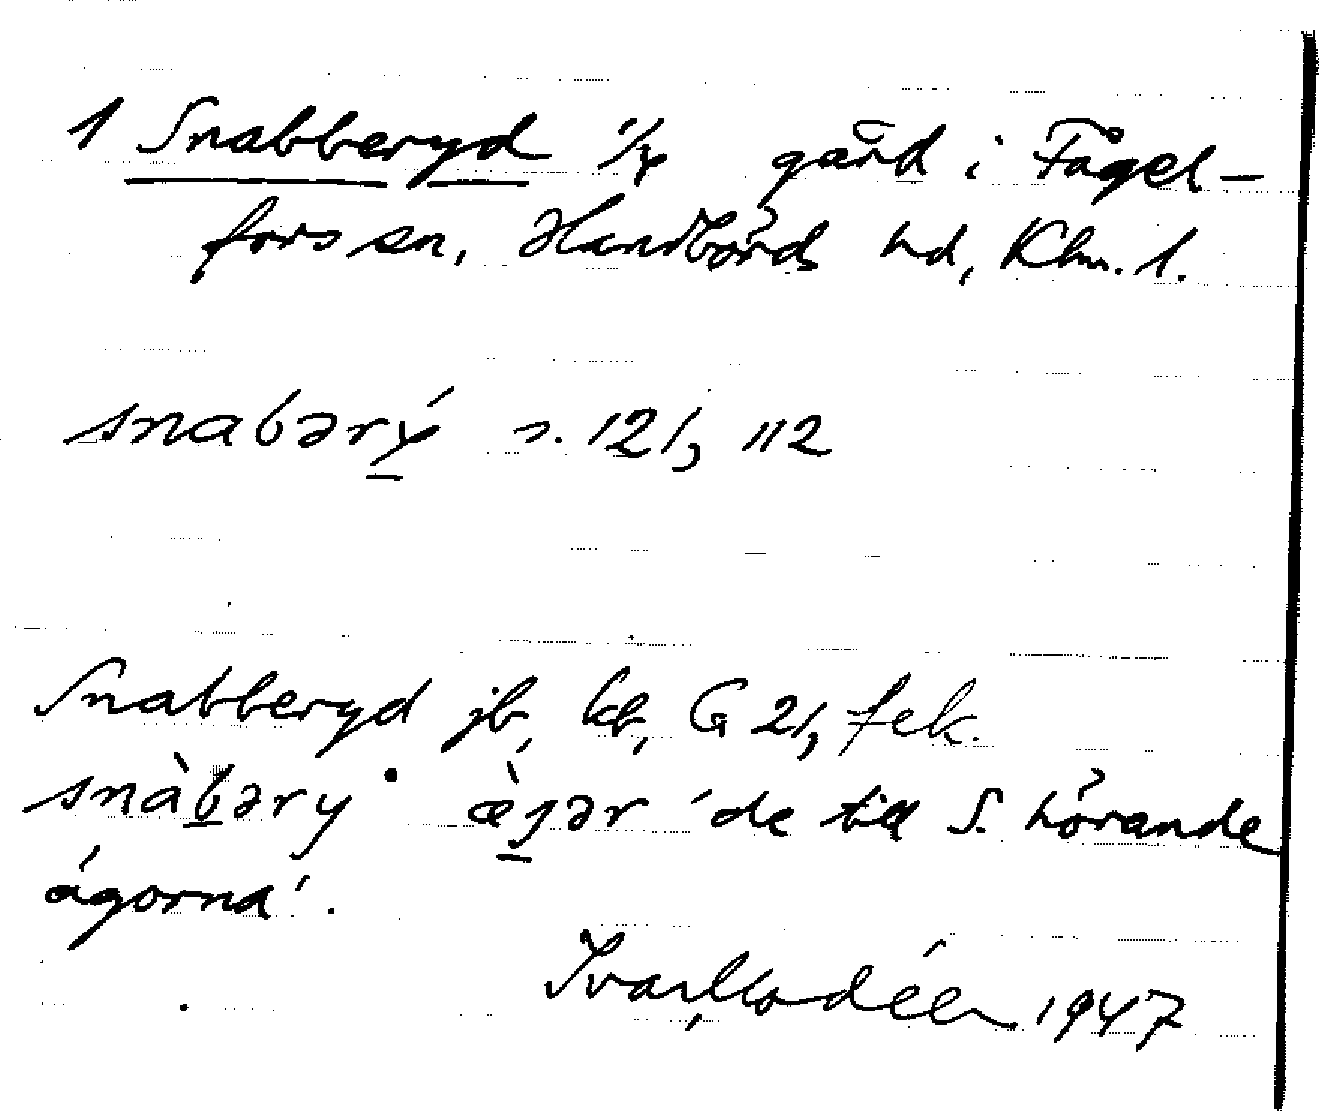 1 Snabberyd 1/4 gård i Fågel-
fors sn, Handbörds hd, Klm. l.
snabərý s. 121, 112
Snabberyd jb, kb, G 21, fek.
snàbəry æ̀ȷər 'de till S. hörande
ägorna'.
Ivar Modéer 1947